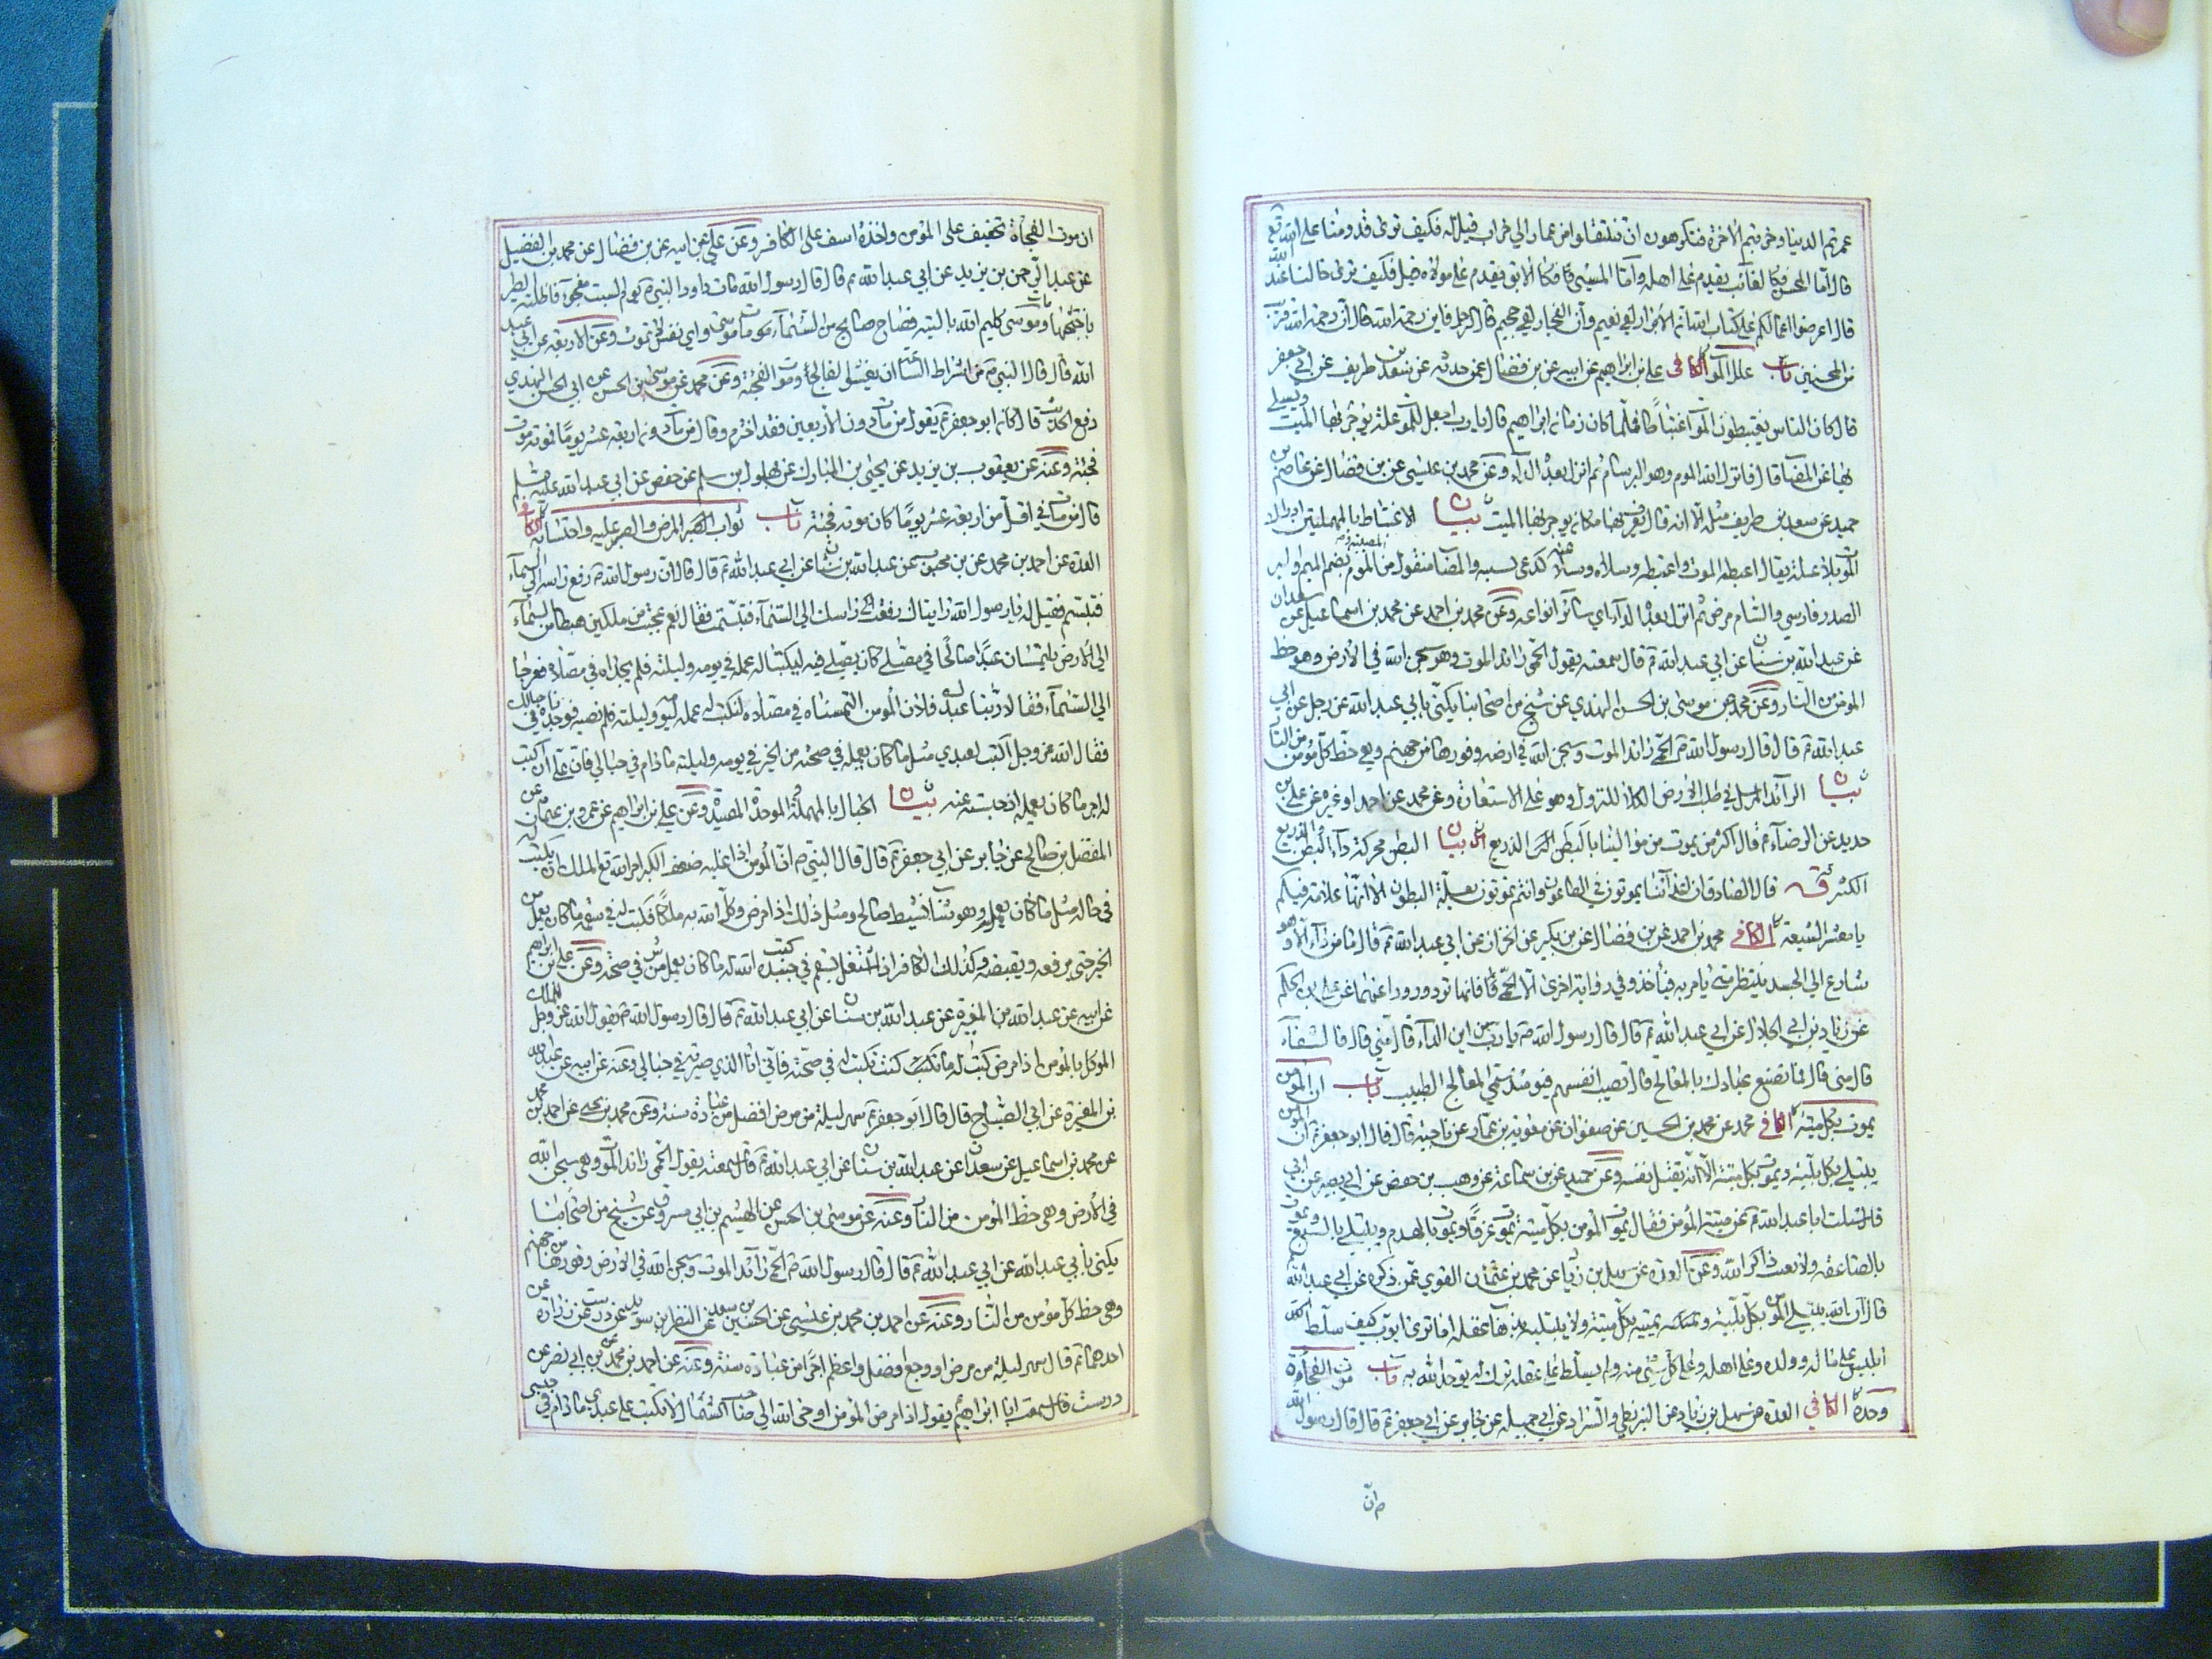 عمرتم الدنيا وخربتم الاخرة فتكرهون ان تنتقلوا من عمار الى خراب قيل له فكيف ترى قدومنا على الله تع
قال اما المحسن فكا لغائب يقدم على اهله واما المسئ فكالابق يقدم على مولاه قيل فكيف ترى حالنا عند الله
قال اعرضوا اعمالكم على كتاب الله ان الابرار لفي نعيم وان الفجار لفي جحيم قال الرجل فاين رحمة الله قال ان رحمة الله قريب
من المحسنين باب علل الموت الكافي علي بن ابراهيم عن ابيه عن بن فضال عمن حدثه عن سعد بن طريف عن ابي جعفر
قال كان الناس يعتبطون اعتباطا فلما كان زمان ابراهيم قال يا رب اجعل للموت علة يوجر بها الميت ويسلى
بها عن المصاب قال فانزل الله الموم وهو البرسام ثم انزل بعده الداء وعن محمد بن عيسى عن بن فضال عن عاصم بن
حميد عن سعد بن طريف مثله الا انه قال يعرف بها مكانه يوجر بها الميت بيان الاعتباط بالمهملتين ادراك
الموت بلا علة يقال اعبطه الموت واعتبطه وسلاه وسلا عنه والمصاب منقول من الموم بضم الميم والبر
الصدر فارسي والسام مرض ثم انزل بعده الداء اي سائر انواعه وعن محمد بن احمد عن محمد بن اسماعيل عن سعدان
عن عبد الله بن سنان عن ابي عبد الله ع قال سمعته يقول الحمى رائد الموت وهو سجن الله في الارض وهو حظ
المؤمن من النار وعن محمد عن موسى بن الحسن الهندي عن شيخ من اصحابنا يكنى بابي عبد الله عن رجل عن ابي
عبد الله ع قال قال رسول الله ص الحمى رائد الموت وسجن الله في ارضه وفورها من جهنم وهي حظ كل مؤمن من النار
بيان الرائد المرسل في طلب الارض الكلاء للنزول وهو على الاستعارة وعن محمد عن احمد او غيره عن علي بن
حديد عن الرضا ع قال اكثر من يموت من موالينا بالبطن الذريع بيان البطن محركة داء البطن والذريع
الكثير قال الصادقان اعدائنا يموتون في الطاعون وانتم تموتون بعلة البطون الا انها علامة فيكم
يا معشر الشيعة الكافي محمد بن احمد عن بن فضال عن بن بكير عن ابي عبد الله ع قال ما من داء الا وهو
شارع الى الجسد ينتظر متى يامر به فياخذه وفي رواية اخرى الا الحمى فانها ترد ورودا عنهما عن علي بن الحكم
عن زياد بن ابي الحلال عن ابي عبد الله ع قال قال رسول الله ص يا رب من اين الداء قال مني قال فالشفاء
قال مني قال فما يصنع عبادك بالمعالج قال تصيب انفسهم فيومئذ سمي المعالج الطبيب باب ان المؤمن
يموت بكل ميتة الكافي محمد عن محمد بن الحسين عن صفوان عن معوية بن عمار عن ناجية قال قال ابو جعفر ع ان المؤمن
يبتلى بكل بلية ويموت بكل ميتة الا انه يقتل نفسه وعن حميد عن بن سماعة عن وهب بن حفص عن ابي بصير
قال سئلت ابا عبد الله ع عن ميتة المؤمن فقال يموت المؤمن بكل ميتة يموت غرقا ويموت بالهدم ويبتلى بالسبع ويموت
بالصاعقة ولا تصيب ذاكر الله وعن العدة عن سهل بن زياد عن محمد بن عثمان القوي عمن ذكره عن ابي عبد الله
قال ان الله يبتلي المؤمن بكل بلية ويميته بكل ميتة ولا يبتليه بذهاب عقله اما ترى ايوب كيف سلط الله
ابليس على ماله وولده وعلى اهله وعلى كل شئ منه ولم يسلط على عقله ترك له يوحد الله به باب موت الفجاة
وحده الكافي العدة عن سهل بن زياد عن البزنطي والسراد عن ابي جميلة عن جابر عن ابي جعفر ع قال قال رسول الله
ص ان
ان موت الفجاة تخفيف على المؤمن واخذة اسف على الكافر وعن علي عن ابيه عن بن فضال عن محمد بن الفضيل
عن عبد الرحمن بن يزيد عن ابي عبد الله ع قال قال رسول الله مات داود النبي ع يوم السبت مفجوء فاظلته الطير
باجنحتها ومات موسى كليم الله بالتيه فصاح صايح من السماء مات موسى واي نفس لا تموت وعن الاربعة عن ابي عبد
الله قال قال النبي ص من اشراط الساعة ان يفشو الفالج وموت الفجئة وعن محمد عن موسى بن الحسن عن ابي الحسن الهندي
رفع الحديث قال كان ابو جعفر ع يقول من مات دون الاربعين فقد اخترم وقال من مات دون اربعة عشر يوما فموته موت
فجئة وعنه عن يعقوب بن يزيد عن يحيى بن المبارك عن بهلول بن مسلم عن حفص عن ابي عبد الله عليه
قال من مات في اقل من اربعة عشر يوما كان موته فجئة باب ثواب المرض والصبر عليه واحتسابه الكافي
العدة عن احمد بن محمد عن بن محبوب عن عبد الله بن سنان عن ابي عبد الله ع قال قال ان رسول الله ص رفع راسه الى السماء
فتبسم فقيل له يا رسول الله رايناك رفعت راسك الى السماء فتبسمت فقال نعم عجبت من ملكين هبطا من السماء
الى الارض يلتمسان عبدا صالحا في مصلى كان يصلي فيه ليكتبا له عمله في يومه وليلته فلم يجداه في مصلاه فعرجا
الى السماء فقالا ربنا عبدك فلان المؤمن التمسناه في مصلاه لنكتب له عمله ليومه وليلته فلم نصبه فوجدناه في حبالك
فقال الله عز وجل اكتبا لعبدي مثل ما كان يعمله في صحته من الخير في يومه وليلته ما دام في حبالي فان علي ان اكتب
له اجر ما كان يعمله اذ حبسته عنه بيان الحبال بالمهملة الموحدة المصيدة وعن علي بن ابراهيم عن عمرو بن عثمان عن
المفضل بن صالح عن جابر عن ابي جعفر ع قال قال النبي ص ان المؤمن اذا غلبه ضعف الكبر امر الله تع الملك ان يكتب له
في حاله مثل ما كان يعمل وهو شاب نشيط صالح ومثل ذلك اذا مرض وكل الله به ملكا فكتب له في سقمه ما كان يعمل من
الخير حتى يرفعه ويقبضه وكذلك الكافر اذا اشتغل بسقم في جسده كتب الله له ما كان يعمل من شر في صحته وعن علي بن ابراهيم
عن ابيه عن عبد الله بن المغيرة عن عبد الله بن سنان عن ابي عبد الله ع قال قال رسول الله ص يقول الله عز وجل للملك
الموكل بالمؤمن اذا مرض كتبت له ما كنت تكتب له في صحته فاني انا الذي صيرته في حبالي وعنه عن ابيه عن عبد الله
بن المغيرة عن ابي الصباح قال قال ابو جعفر ع سهر ليلة من مرض افضل من عبادة سنة وعن محمد بن يحيى عن احمد بن محمد
عن محمد بن اسماعيل عن سعدان عن عبد الله بن سنان عن ابي عبد الله ع قال سمعته يقول الحمى رائد الموت وهي سجن الله
في الارض وهي حظ المؤمن من النار وعنه عن موسى بن الحسن عن الهيثم بن ابي مسروق عن شيخ من اصحابنا
يكنى بابي عبد الله عن ابي عبد الله ع قال قال رسول الله ص الحمى رائد الموت وسجن الله في الارض وفورها من جهنم
وهي حظ كل مؤمن من النار وعنه عن احمد بن محمد بن عيسى عن الحسين بن سعيد عن النضر بن سويد عن درست عن زرارة عن
احدهما ع قال سهر ليلة من مرض او وجع افضل واعظم اجرا من عبادة سنة وعنه عن احمد بن محمد بن ابي نصر عن
درست قال سمعت ابا ابراهيم يقول اذا مرض المؤمن اوحى الله الى صاحب الشمال لا تكتب على عبدي ما دام في حبسي